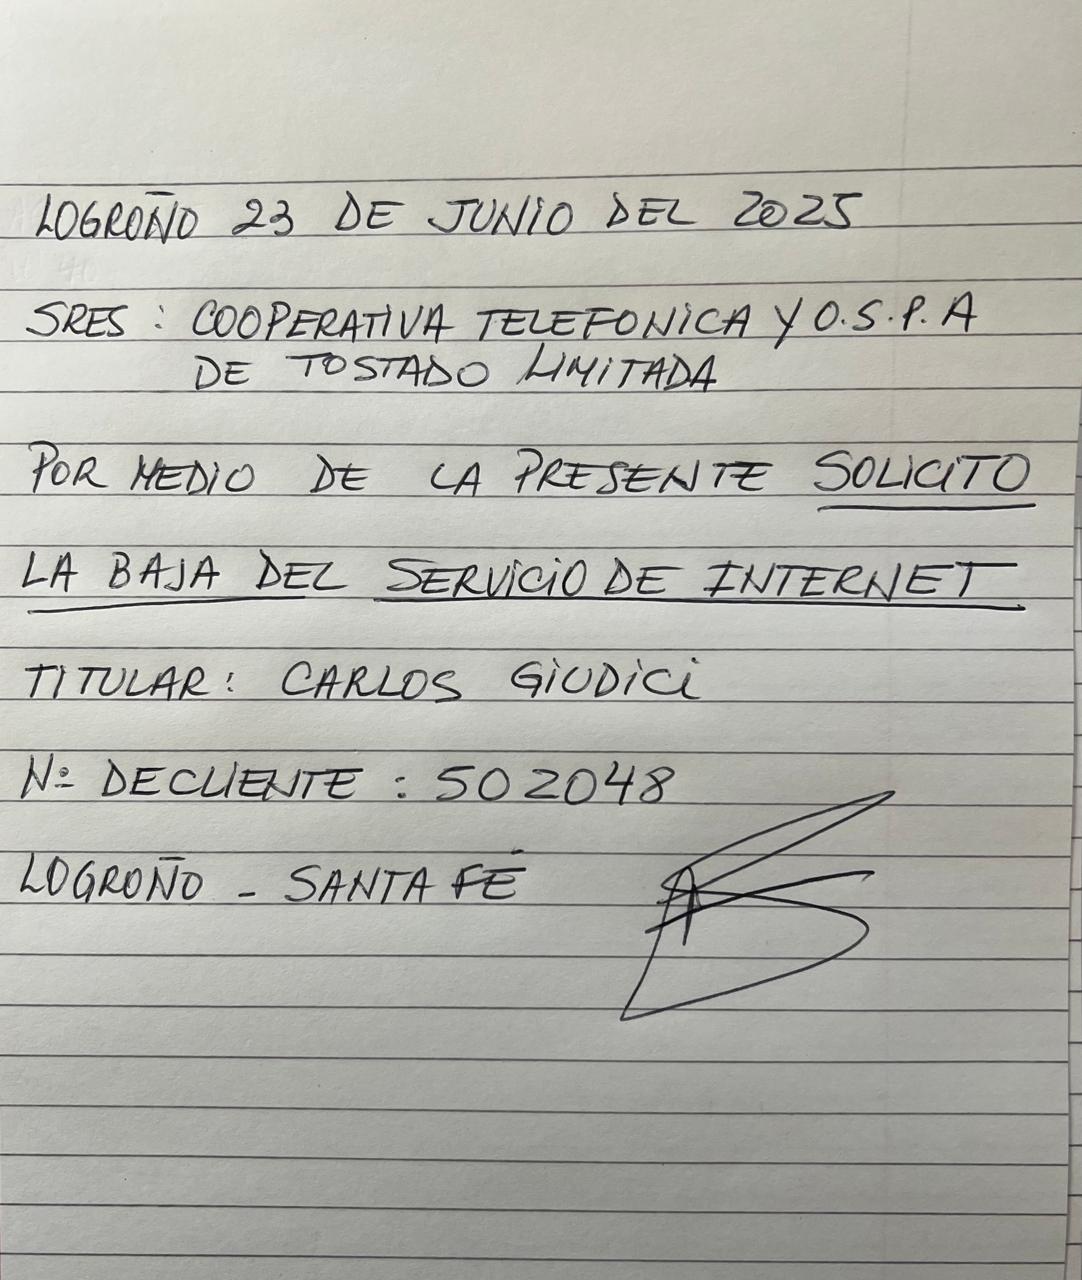 LOGROÑO 23 DE JUNIO DEL 2025
SRES : COOPERATIVA TELEFONICA Y O.S.P.A
DE TOSTADO LIMITADA
POR MEDIO DE LA PRESENTE SOLICITO
LA BAJA DEL SERVICIO DE INTERNET
TITULAR: CARLOS GIUDICI
Nº DE CLIENTE : 502048
LOGROÑO - SANTA FÉ